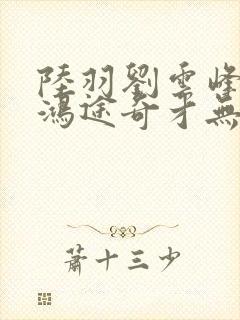 陸羽劉雲峰
鴻途奇才無
蕭十三少